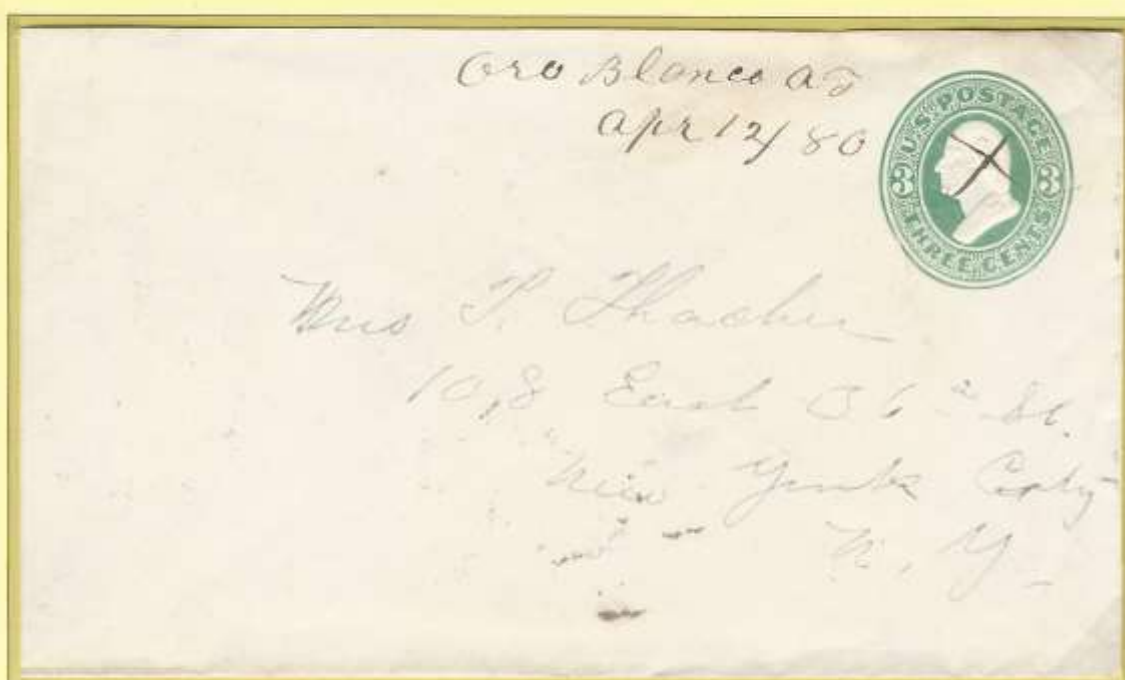 Oro Blanco A T
Apr 12/80
U.S. POSTAGE
3 3
THREE CENTS
Mrs T. Thacher
108 East 36th St.
New York City
N. Y.